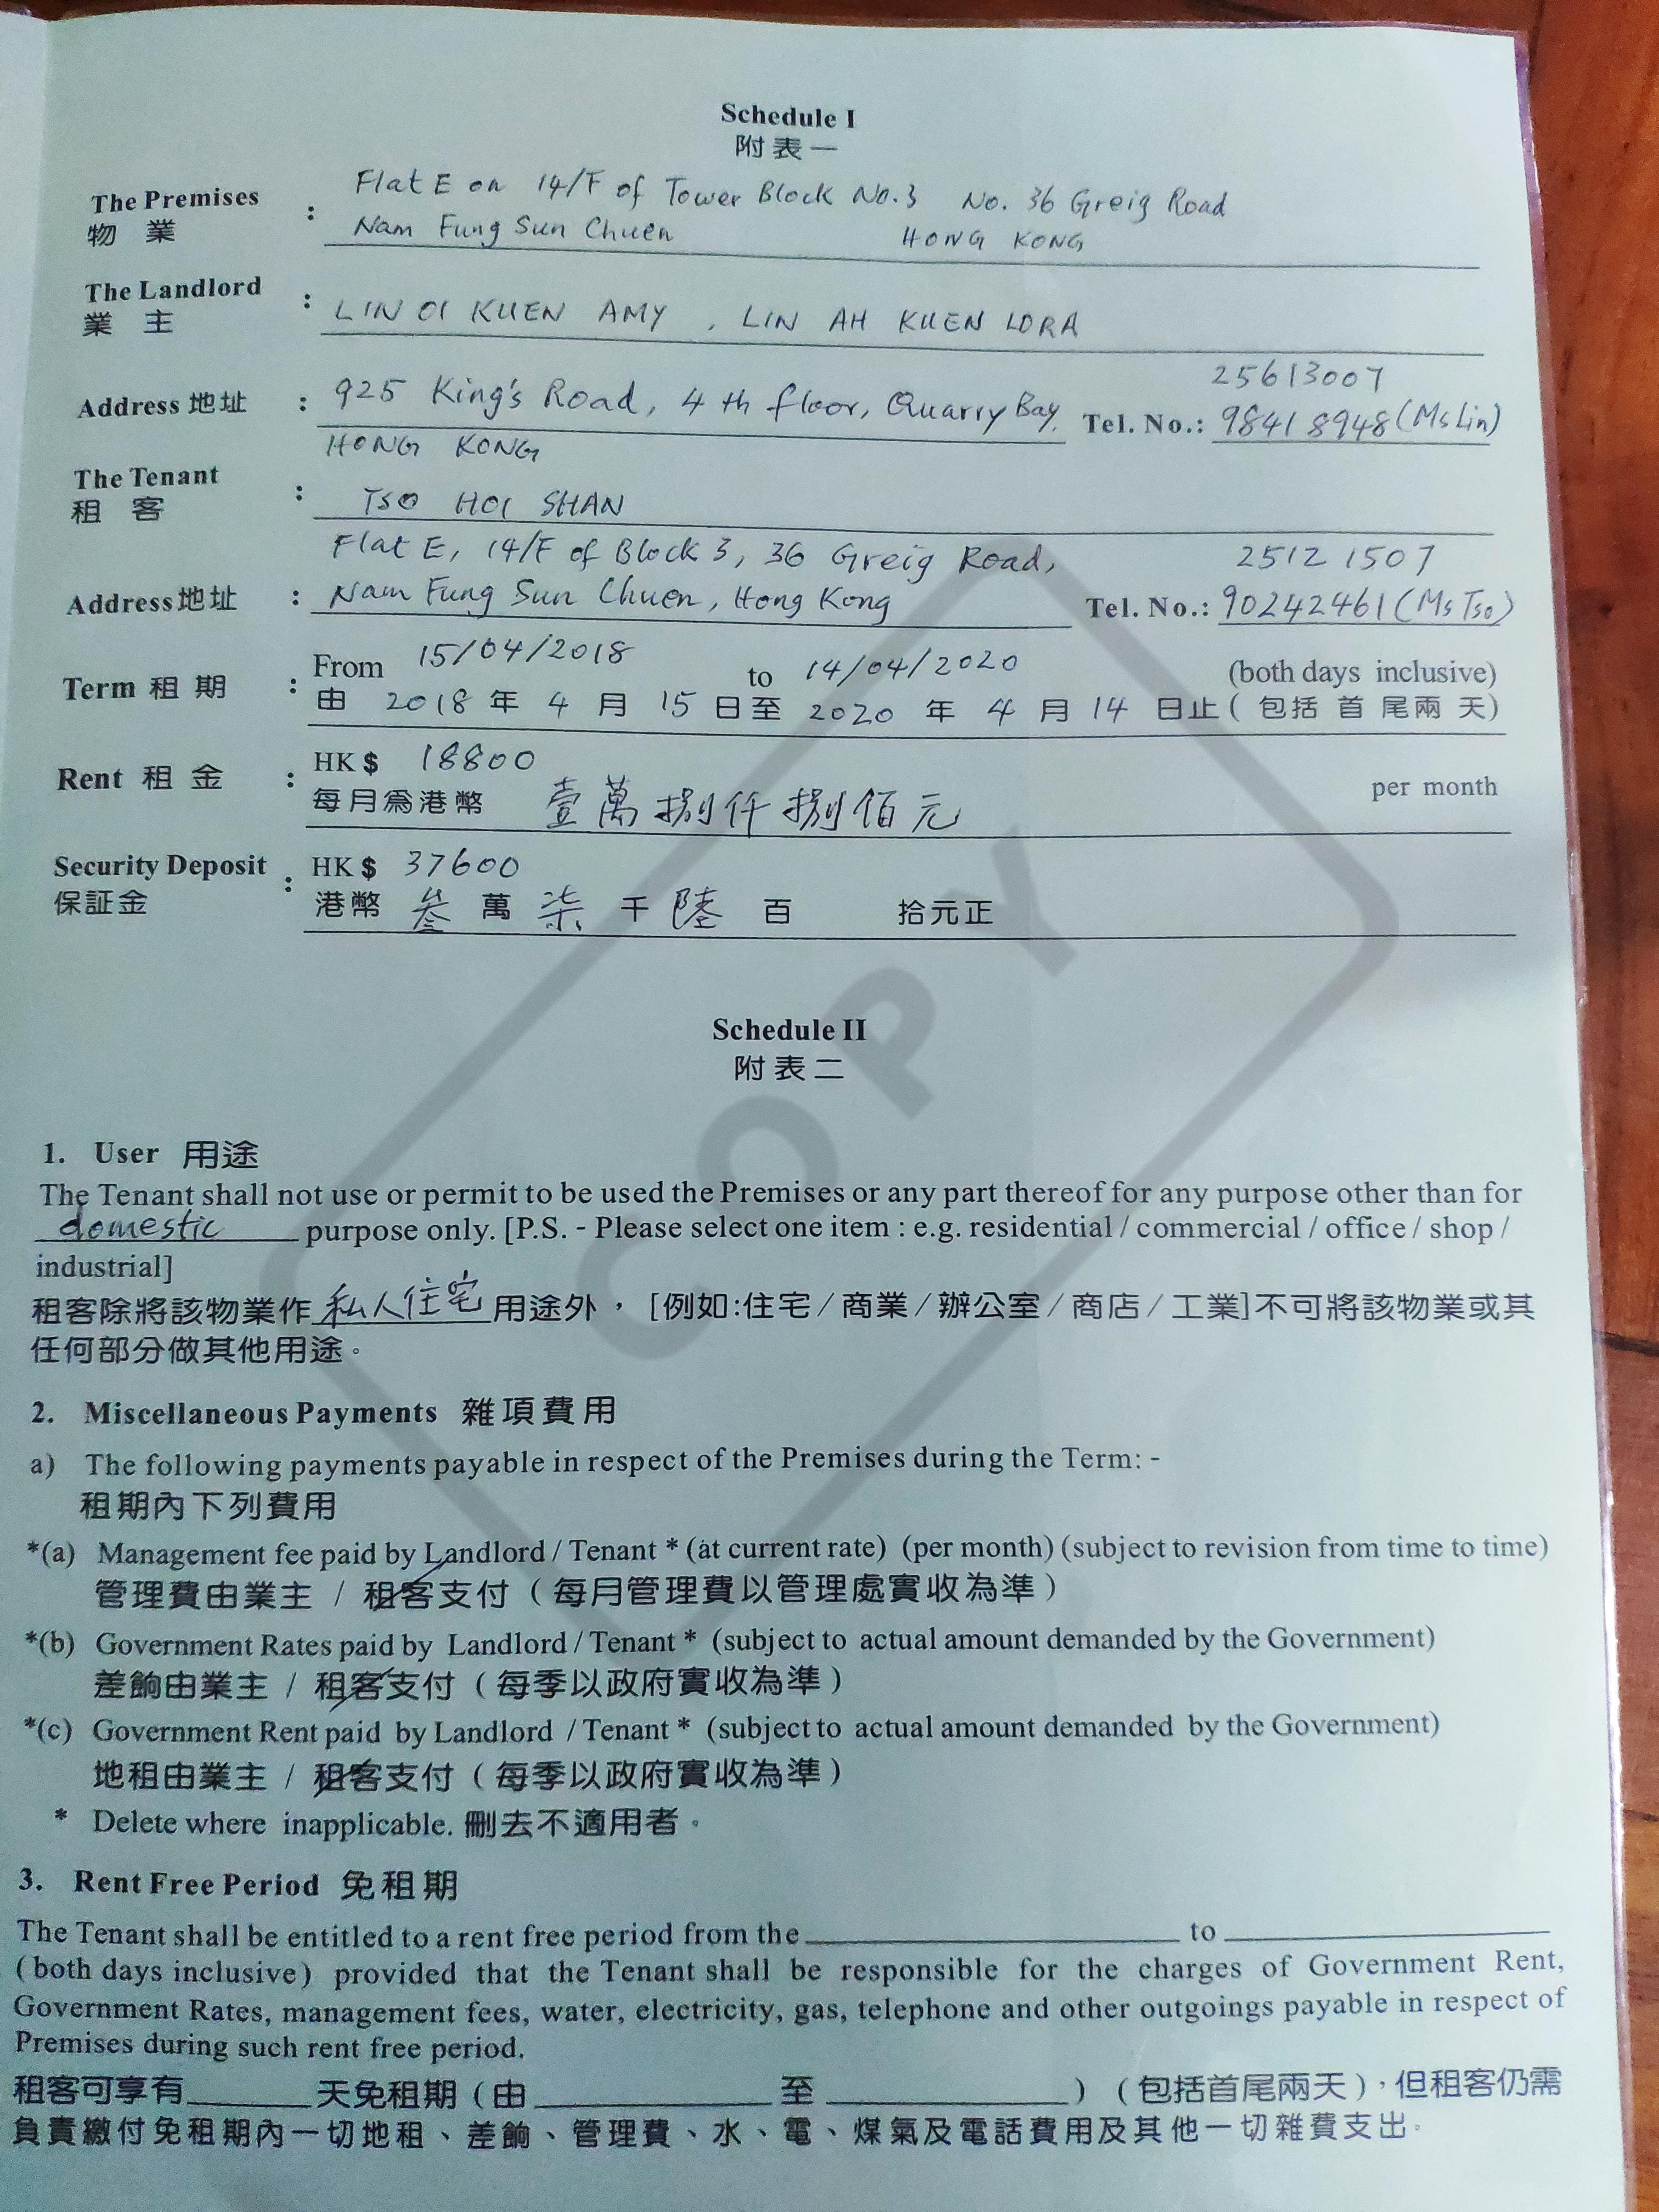 Schedule I
附表一
The Premises
物業
:
Flat E on 14/F of Tower Block No.3 No. 36 Greig Road
Nam Fung Sun Chuen HONG KONG
The Landlord
業主
:
LIN OI KUEN AMY , LIN AH KUEN LORA
Address 地址 : 925 King's Road, 4 th floor, Quarry Bay,
HONG KONG
25613007
Tel. No.: 98418948 (Ms Lin)
The Tenant
租客
:
TSO HOI SHAN
Flat E, 14/F of Block 3, 36 Greig Road,
Address 地址 : Nam Fung Sun Chuen, Hong Kong
2512 1507
Tel. No.: 90242461 (Ms Tso)
Term 租期 :
From 15/04/2018 to 14/04/2020 (both days inclusive)
由 2018 年 4 月 15 日至 2020 年 4 月 14 日止 ( 包括首尾兩天)
Rent 租金 :
HK $ 18800
每月為港幣 壹萬捌仟捌佰元 per month
Security Deposit
保証金
:
HK $ 37600
港幣 叁 萬 柒 千 陸 百 拾元正
Schedule II
附表二
1. User 用途
The Tenant shall not use or permit to be used the Premises or any part thereof for any purpose other than for
domestic purpose only. [P.S. - Please select one item : e.g. residential / commercial / office / shop /
industrial]
租客除將該物業作 私人住宅 用途外， [例如:住宅/商業/辦公室/商店/工業]不可將該物業或其
任何部分做其他用途。
2. Miscellaneous Payments 雜項費用
a) The following payments payable in respect of the Premises during the Term: -
租期內下列費用
*(a) Management fee paid by Landlord / Tenant * (at current rate) (per month) (subject to revision from time to time)
管理費由業主 / 租客支付 ( 每月管理費以管理處實收為準 )
*(b) Government Rates paid by Landlord / Tenant * (subject to actual amount demanded by the Government)
差餉由業主 / 租客支付 ( 每季以政府實收為準 )
*(c) Government Rent paid by Landlord / Tenant * (subject to actual amount demanded by the Government)
地租由業主 / 租客支付 ( 每季以政府實收為準 )
* Delete where inapplicable. 刪去不適用者。
3. Rent Free Period 免租期
The Tenant shall be entitled to a rent free period from the ____ to ____
(both days inclusive) provided that the Tenant shall be responsible for the charges of Government Rent,
Government Rates, management fees, water, electricity, gas, telephone and other outgoings payable in respect of
Premises during such rent free period.
租客可享有____天免租期 ( 由 ____ 至 ____ ) ( 包括首尾兩天 )，但租客仍需
負責繳付免租期內一切地租、差餉、管理費、水、電、煤氣及電話費用及其他一切雜費支出。
COPY